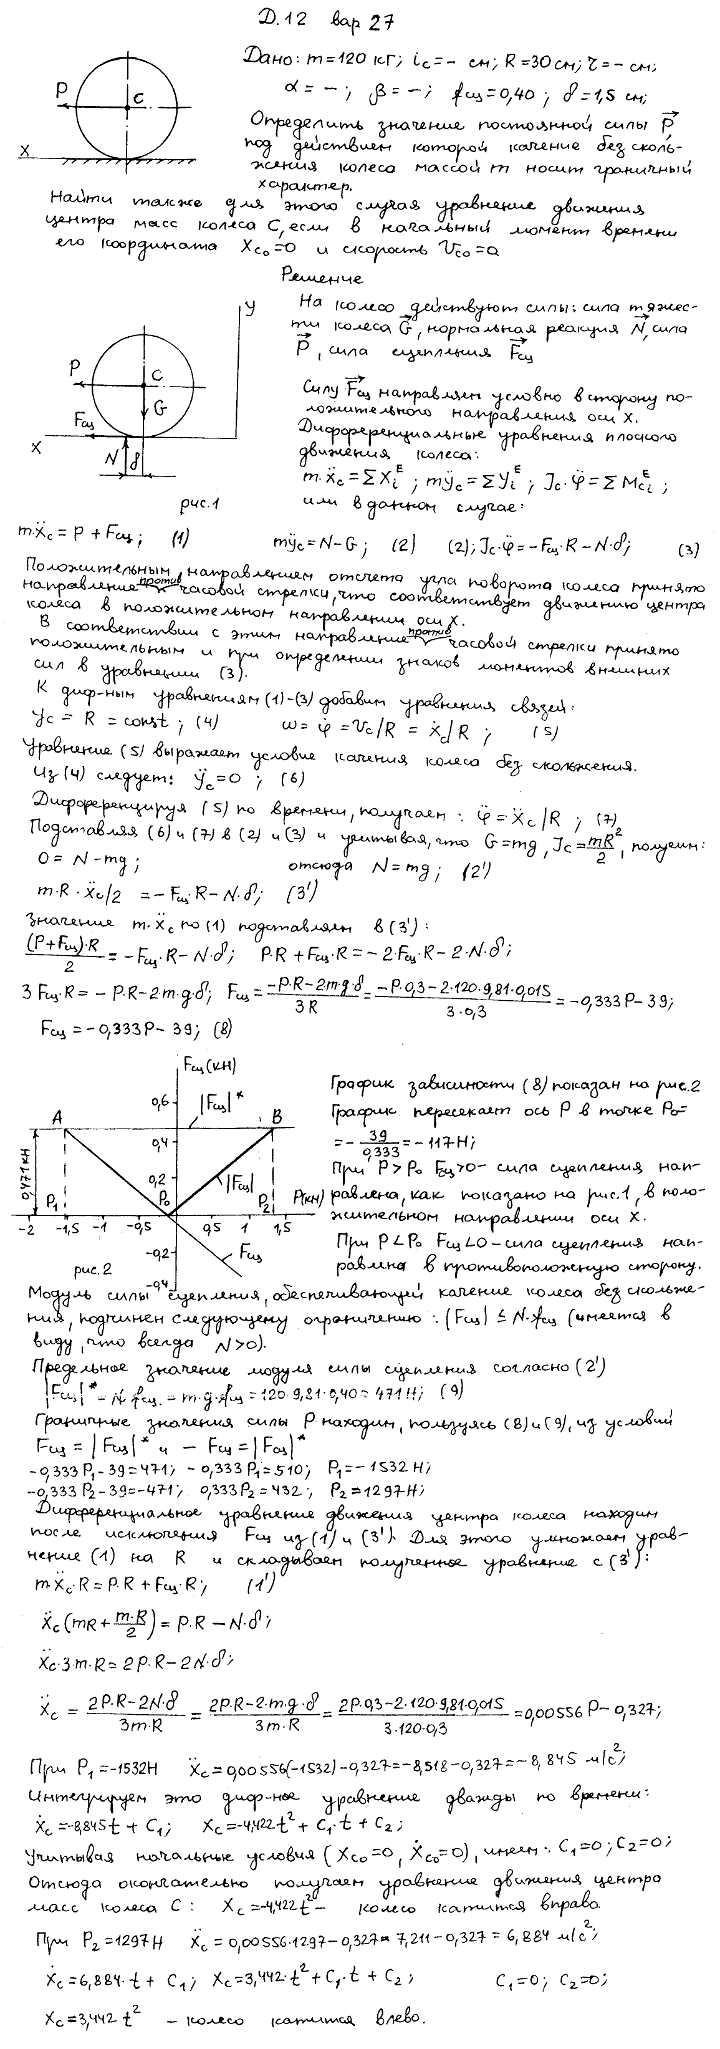 Д.12 вар 27
Дано: m=120 кг; iс=- см; R=30см; r=- см;
α = - ; β = - ; fсц=0,40 ; δ=1,5 см;
Определить значение постоянной силы P,
под действием которой качение без сколь-
жения колеса массой m носит граничный
характер.
Найти также для этого случая уравнение движения
центра масс колеса С, если в начальный момент времени
его координата Xco=0 и скорость Vco=0
P
C
X
Решение
На колесо действуют силы: сила тяжес-
ти колеса G, нормальная реакция N, сила
P, сила сцепления Fсц
Силу Fсц направляем условно в сторону по-
ложительного направления оси X.
Дифференциальные уравнения плоского
движения колеса:
m·ẍc=ΣXiᴱ ; mÿc=ΣYiᴱ ; Jc·φ̈=ΣMciᴱ ;
или в данном случае:
y
P
C
G
Fсц
X
N
δ
рис.1
mẍc=P+Fсц; (1) mÿc=N-G; (2) (2); Jc·φ̈=-Fсц·R-N·δ; (3)
Положительным направлением отсчета угла поворота колеса принято
направление против часовой стрелки, что соответствует движению центра
колеса в положительном направлении оси X.
В соответствии с этим направление против часовой стрелки принято
положительным и при определении знаков моментов внешних
сил в уравнении (3).
К диф-ным уравнениям (1)-(3) добавим уравнения связей:
yc = R = const ; (4) ω = φ̇ = Vc/R = ẋc/R ; (5)
Уравнение (5) выражает условие качения колеса без скольжения.
Из (4) следует: ÿc=0 ; (6)
Дифференцируя (5) по времени, получаем : φ̈ = ẍc/R ; (7)
Подставляя (6) и (7) в (2) и (3) и учитывая, что G=mg, Jc=mR²/2, получим:
0 = N-mg; отсюда N=mg; (2')
m·R·ẍc/2 = -Fсц·R-N·δ; (3')
Значение m·ẍc по (1) подставляем в (3'):
(P+Fсц)·R/2 = -Fсц·R-N·δ; P·R+Fсц·R=-2·Fсц·R-2·N·δ;
3Fсц·R=-P·R-2m·g·δ; Fсц=(-P·R-2m·g·δ)/3R=(-P·0,3-2·120·9,81·0,015)/3·0,3=-0,333P-39;
Fсц=-0,333P-39; (8)
Fсц(кН)
0,6 |Fсц|*
A B
0,4
0,471кН
0,2 |Fсц|
P1 P0 P2 P(кН)
-2 -1,5 -1 -0,5 0,5 1 1,5
-0,2 Fсц
рис.2
-0,4
График зависимости (8) показан на рис.2
График пересекает ось P в точке P0=
=-39/0,333=-117Н;
При P>P0 Fсц>0- сила сцепления нап-
равлена, как показано на рис.1, в поло-
жительном направлении оси X.
При P<P0 Fсц<0-сила сцепления нап-
равлена в противоположную сторону.
Модуль силы сцепления, обеспечивающей качение колеса без скольже-
ния, подчинен следующему ограничению: |Fсц| ≤ N·fсц (имеется в
виду, что всегда N>0).
Предельное значение модуля силы сцепления согласно (2')
|Fсц|*=N·fсц.=m·g·fсц=120·9,81·0,40=471Н; (9)
Граничные значения силы P находим, пользуясь (8) и (9), из условий
Fсц=|Fсц|* и -Fсц=|Fсц|*
-0,333P1-39=471; -0,333P1=510; P1=-1532Н;
-0,333P2-39=-471; 0,333P2=432; P2=1297Н;
Дифференциальное уравнение движения центра колеса находим
после исключения Fсц из (1) и (3'). Для этого умножаем урав-
нение (1) на R и складываем полученное уравнение с (3'):
m·ẍc·R=P·R+Fсц·R; (1')
ẍc(mR+m·R/2)=P·R-N·δ;
ẍc·3m·R=2P·R-2N·δ;
ẍc=(2P·R-2N·δ)/3m·R=(2P·R-2·m·g·δ)/3m·R=(2P·0,3-2·120·9,81·0,015)/3·120·0,3=0,00556P-0,327;
При P1=-1532Н ẍc=0,00556(-1532)-0,327=-8,518-0,327=-8,845 м/с²;
Интегрируем это диф-ное уравнение дважды по времени:
ẋc=-8,845t+C1; xc=-4,422t²+C1·t+C2;
Учитывая начальные условия (xco=0, ẋco=0), имеем: C1=0; C2=0;
Отсюда окончательно получаем уравнение движения центра
масс колеса С: xc=-4,422t²- колесо катится вправо.
При P2=1297Н ẍc=0,00556·1297-0,327=7,211-0,327=6,884 м/с²;
ẋc=6,884·t+C1; xc=3,442·t²+C1·t+C2; C1=0; C2=0;
xc=3,442t² - колесо катится влево.